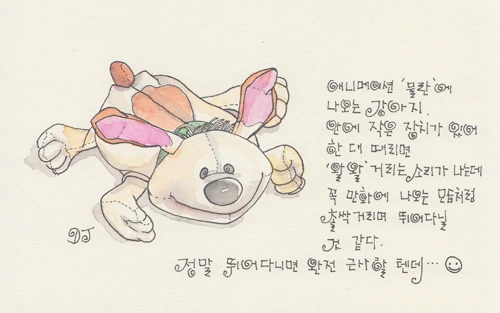 애니메이션 '뮬란'에
나오는 강아지.
안에 작은 장치가 있어
한 대 때리면
'왈왈' 거리는 소리가 나는데
꼭 만화에 나오는 모습처럼
촐싹거리며 뛰어다닐
것 같다.
정말 뛰어다니면 완전 근사할 텐데…
DJ